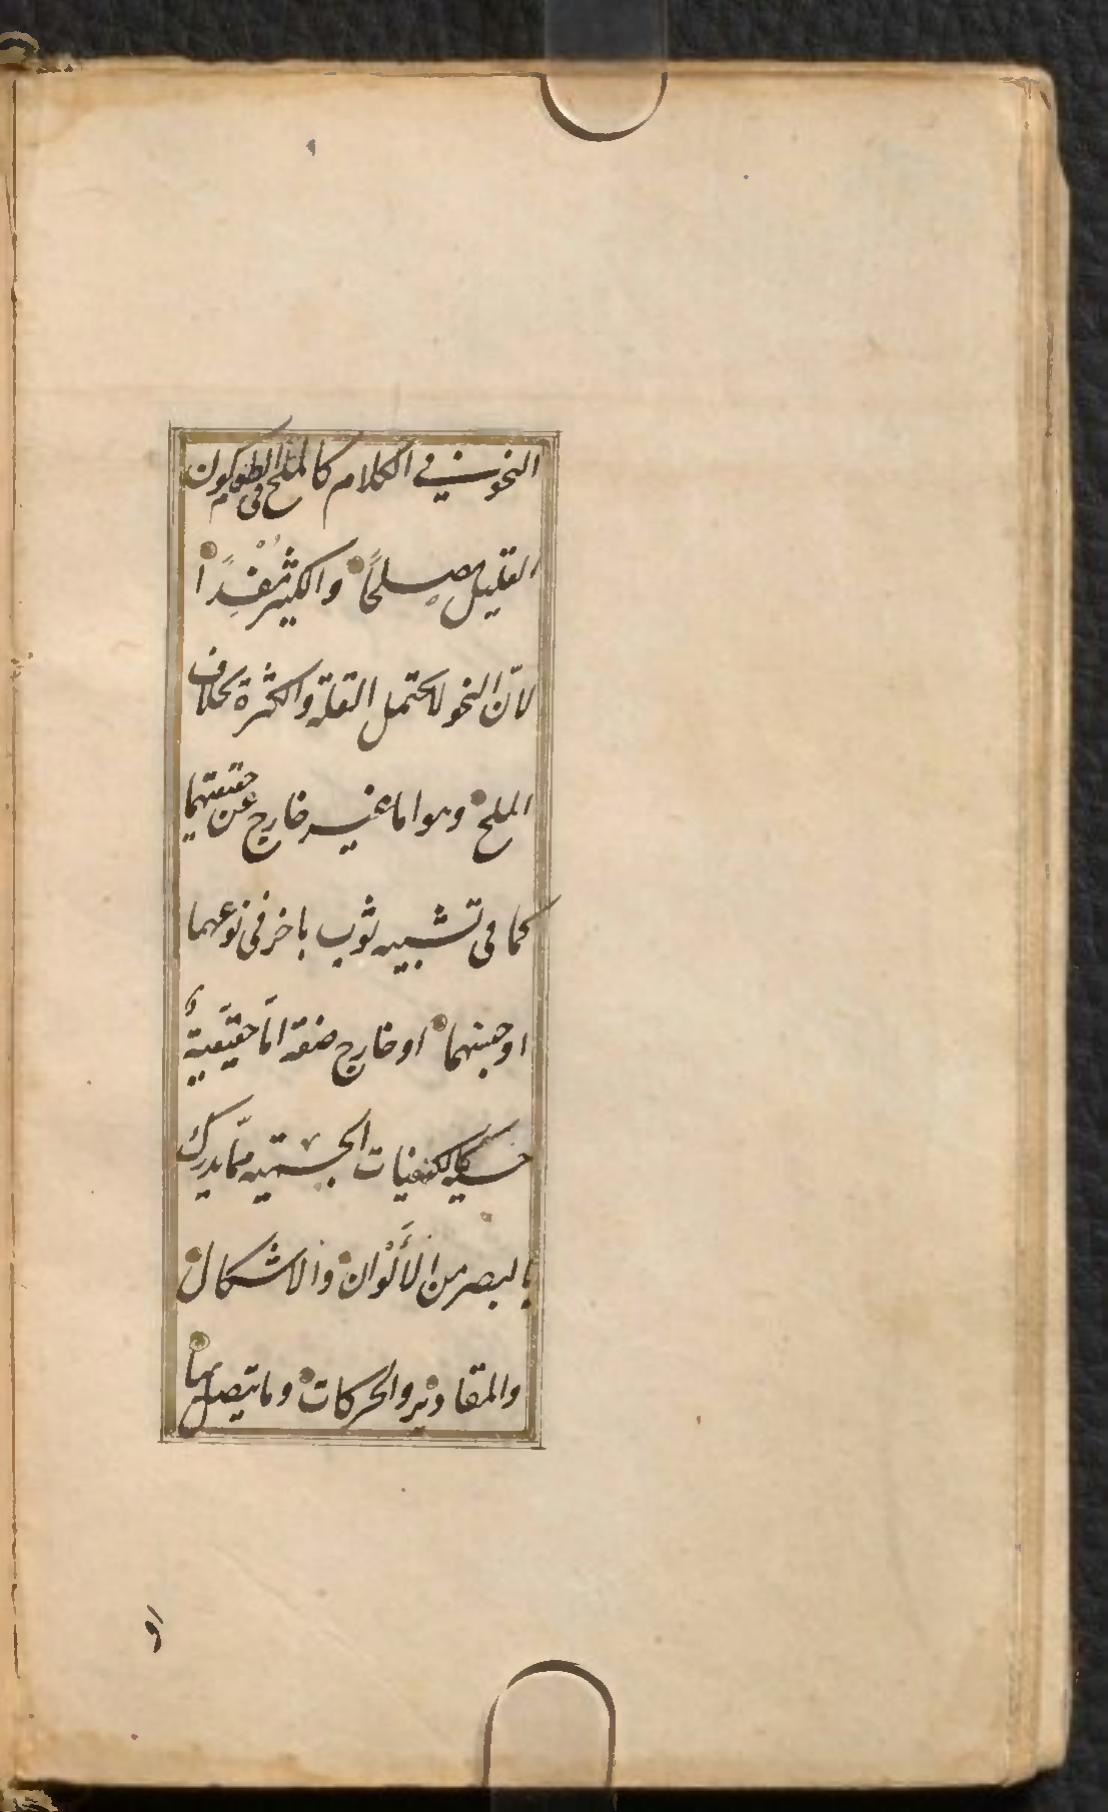 النحو في الكلام كالملح في الطعام كون
القليل مصلحًا والكثير مفسدًا
لانّ النحو لا يحتمل القلة والكثرة بخلاف
الملح وهو اما غير خارج عن حقيقتهما
كما فى تشبيه ثوب باخر فى نوعهما
او جنسهما او خارج صفة امّا حقيقيةٌ
حسية كالكيفيات الجسمية ممّا يدرك
بالبصر من الأَلْوان والاشكال
والمقادير والحركات وما يتصل بها
اَو